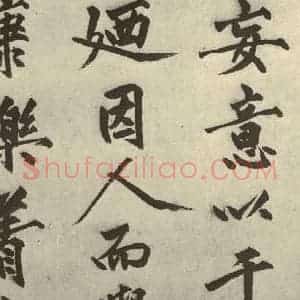 妄意以干
廼因人而
康樂着
Shufaziliao.COM